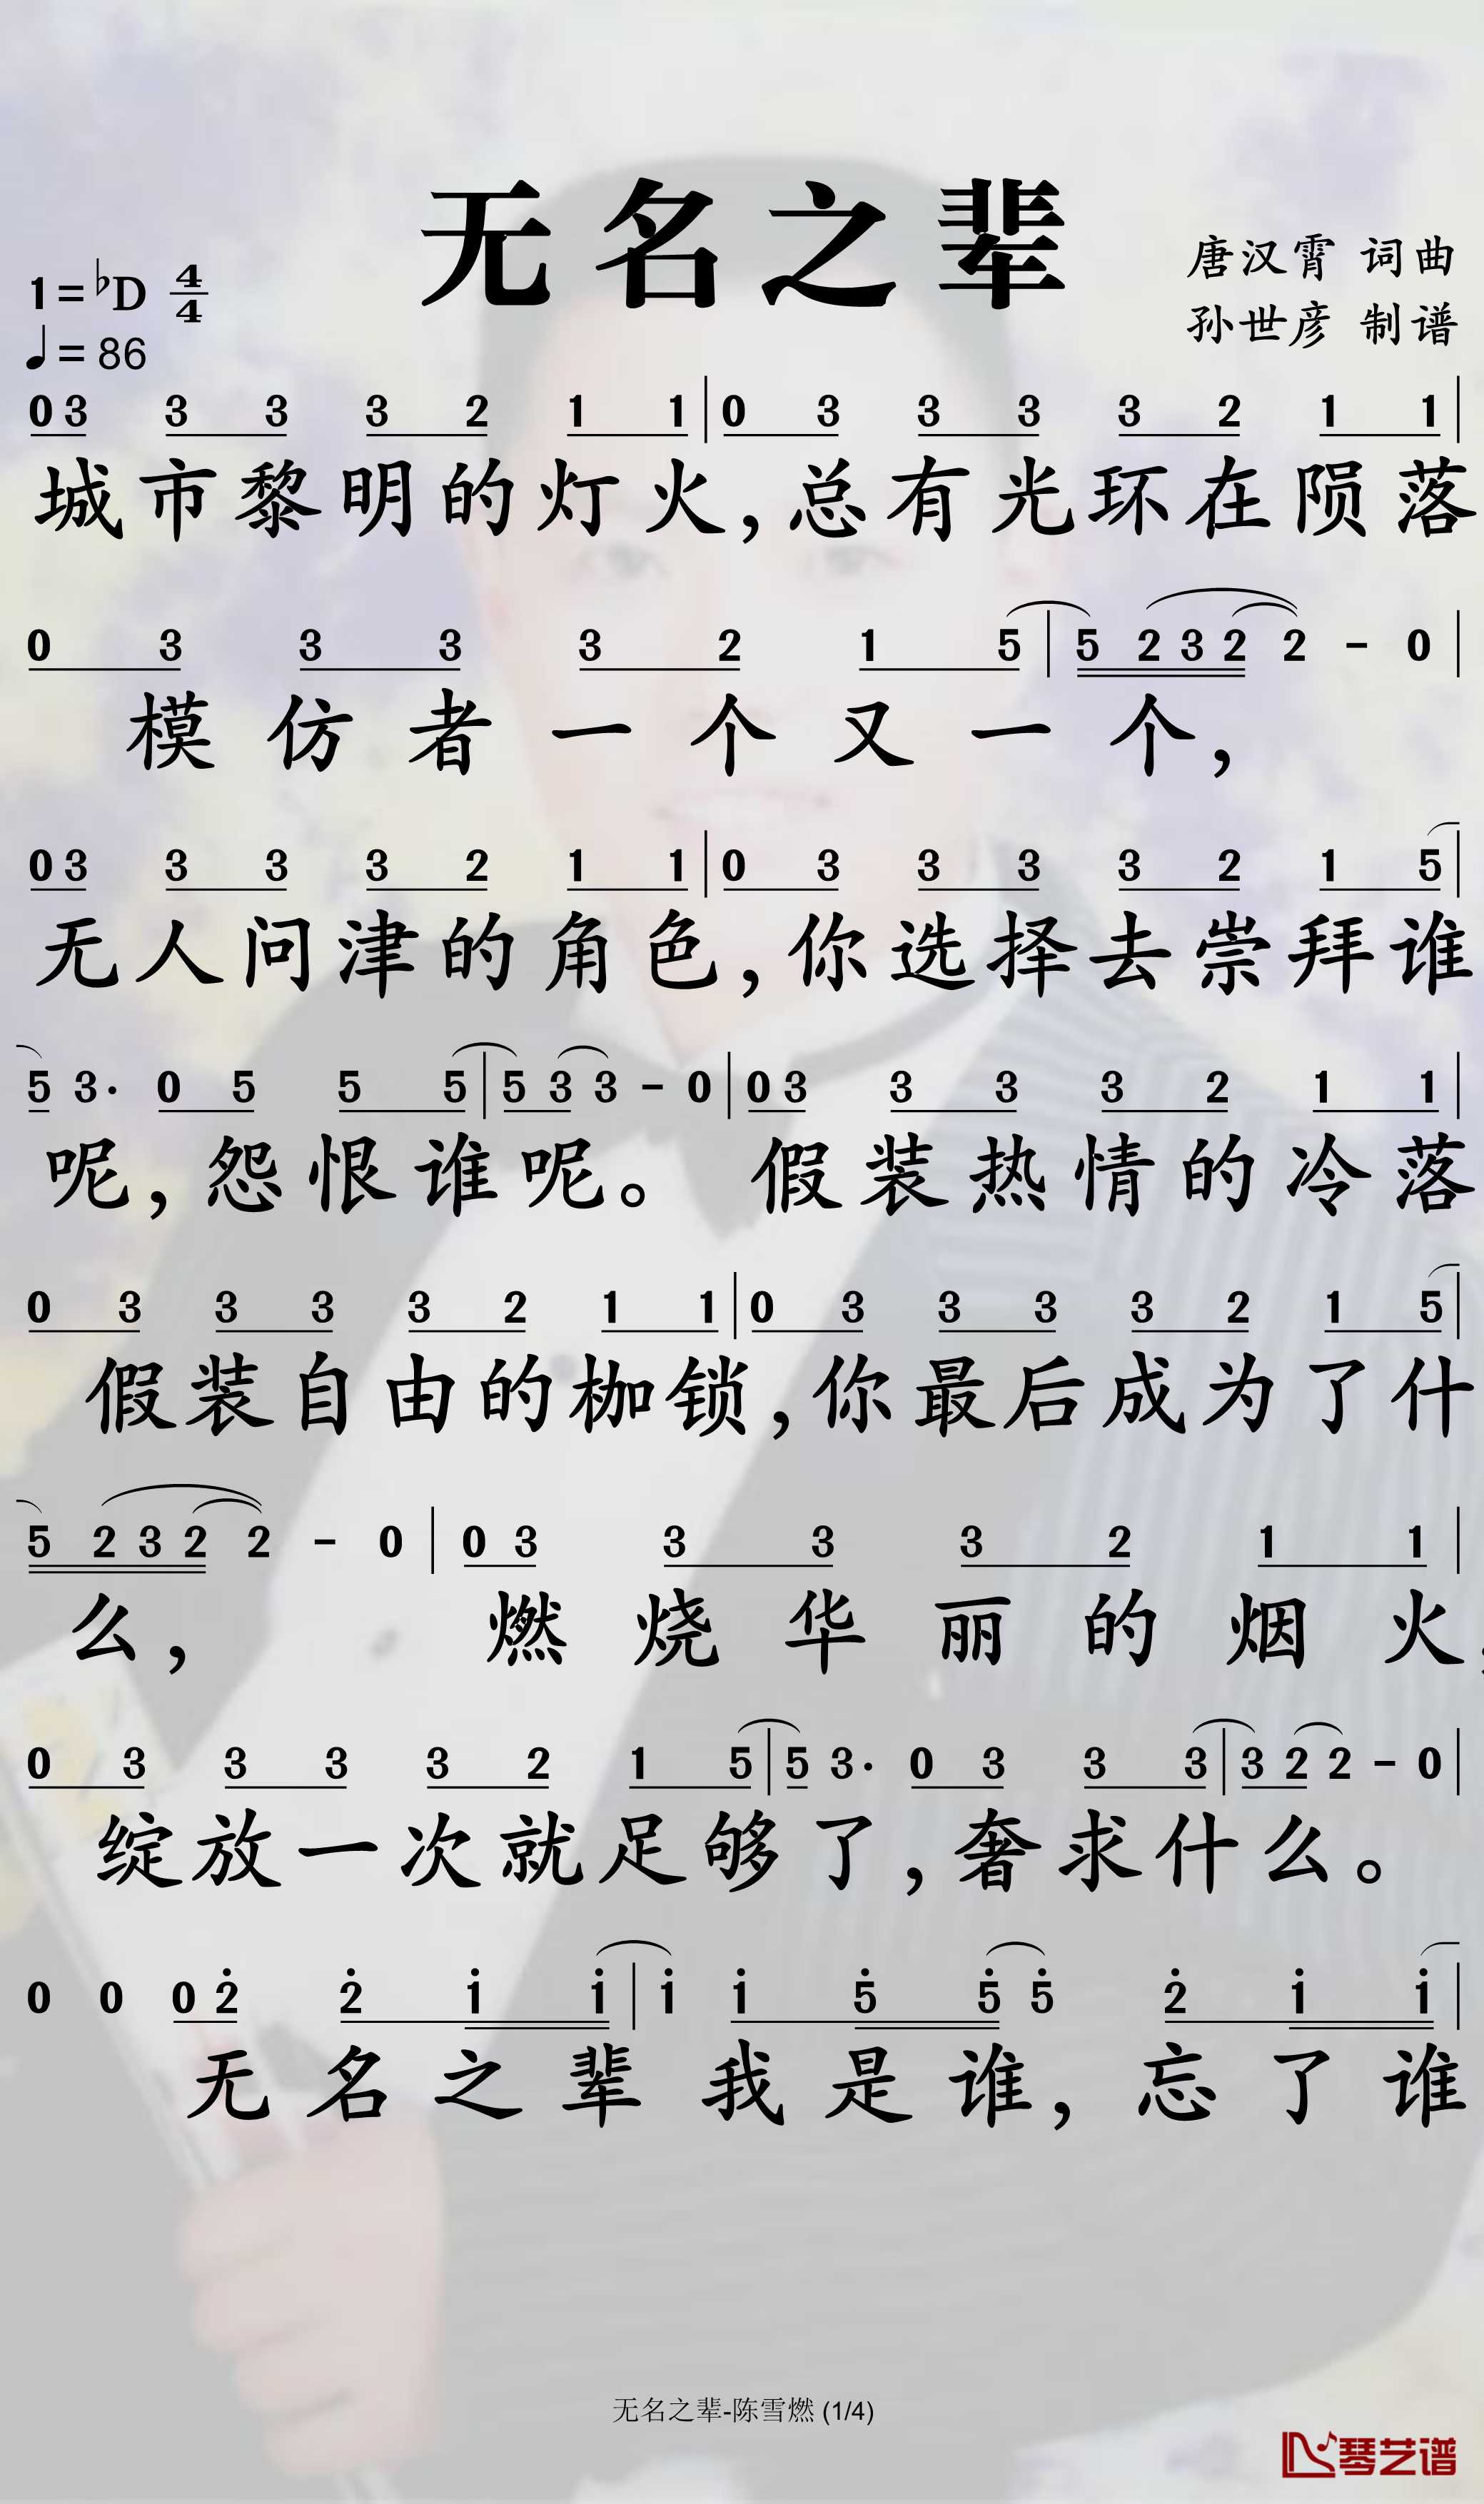 无名之辈
唐汉霄 词曲
孙世彦 制谱
1=♭D 4/4
♩=86
0 3 3 3 3 2 1 1 | 0 3 3 3 3 2 1 1 |
城市黎明的灯火,总有光环在陨落
0 3 3 3 3 2 1 5 | 5 2 3 2 2 - 0 |
模仿者一个又一个,
0 3 3 3 3 2 1 1 | 0 3 3 3 3 2 1 5 |
无人问津的角色,你选择去崇拜谁
5 3· 0 5 5 5 | 5 3 3 - 0 | 0 3 3 3 3 2 1 1 |
呢,怨恨谁呢。 假装热情的冷落
0 3 3 3 3 2 1 1 | 0 3 3 3 3 2 1 5 |
假装自由的枷锁,你最后成为了什
5 2 3 2 2 - 0 | 0 3 3 3 3 2 1 1 |
么, 燃烧华丽的烟火,
0 3 3 3 3 2 1 5 | 5 3· 0 3 3 3 | 3 2 2 - 0 |
绽放一次就足够了,奢求什么。
0 0 0 2̇ 2̇ 1̇ 1̇ | 1̇ 1̇ 5̇ 5̇ 5̇ 2̇ 1̇ 1̇ |
无名之辈 我是谁, 忘了谁
无名之辈-陈雪燃 (1/4)
琴艺谱